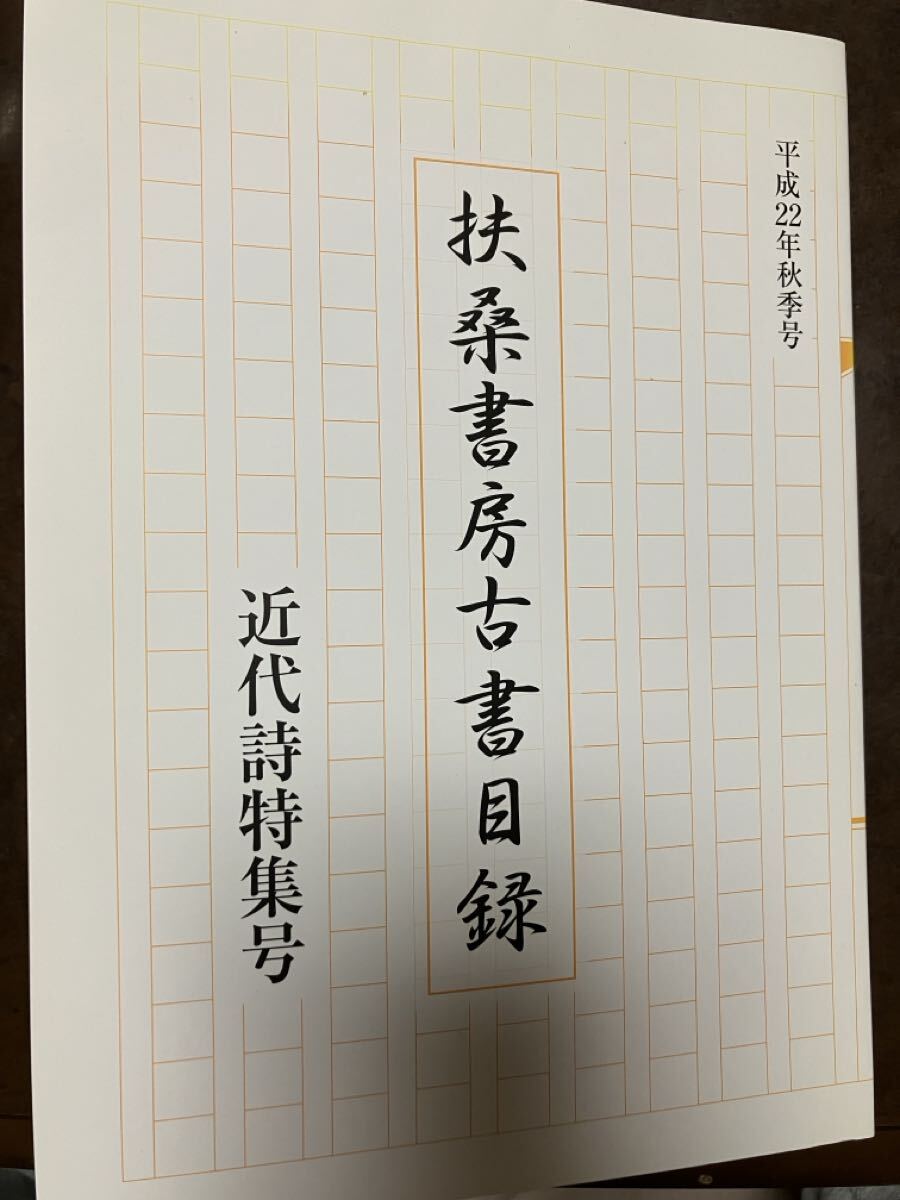 平成22年秋季号
扶桑書房古書目録
近代詩特集号